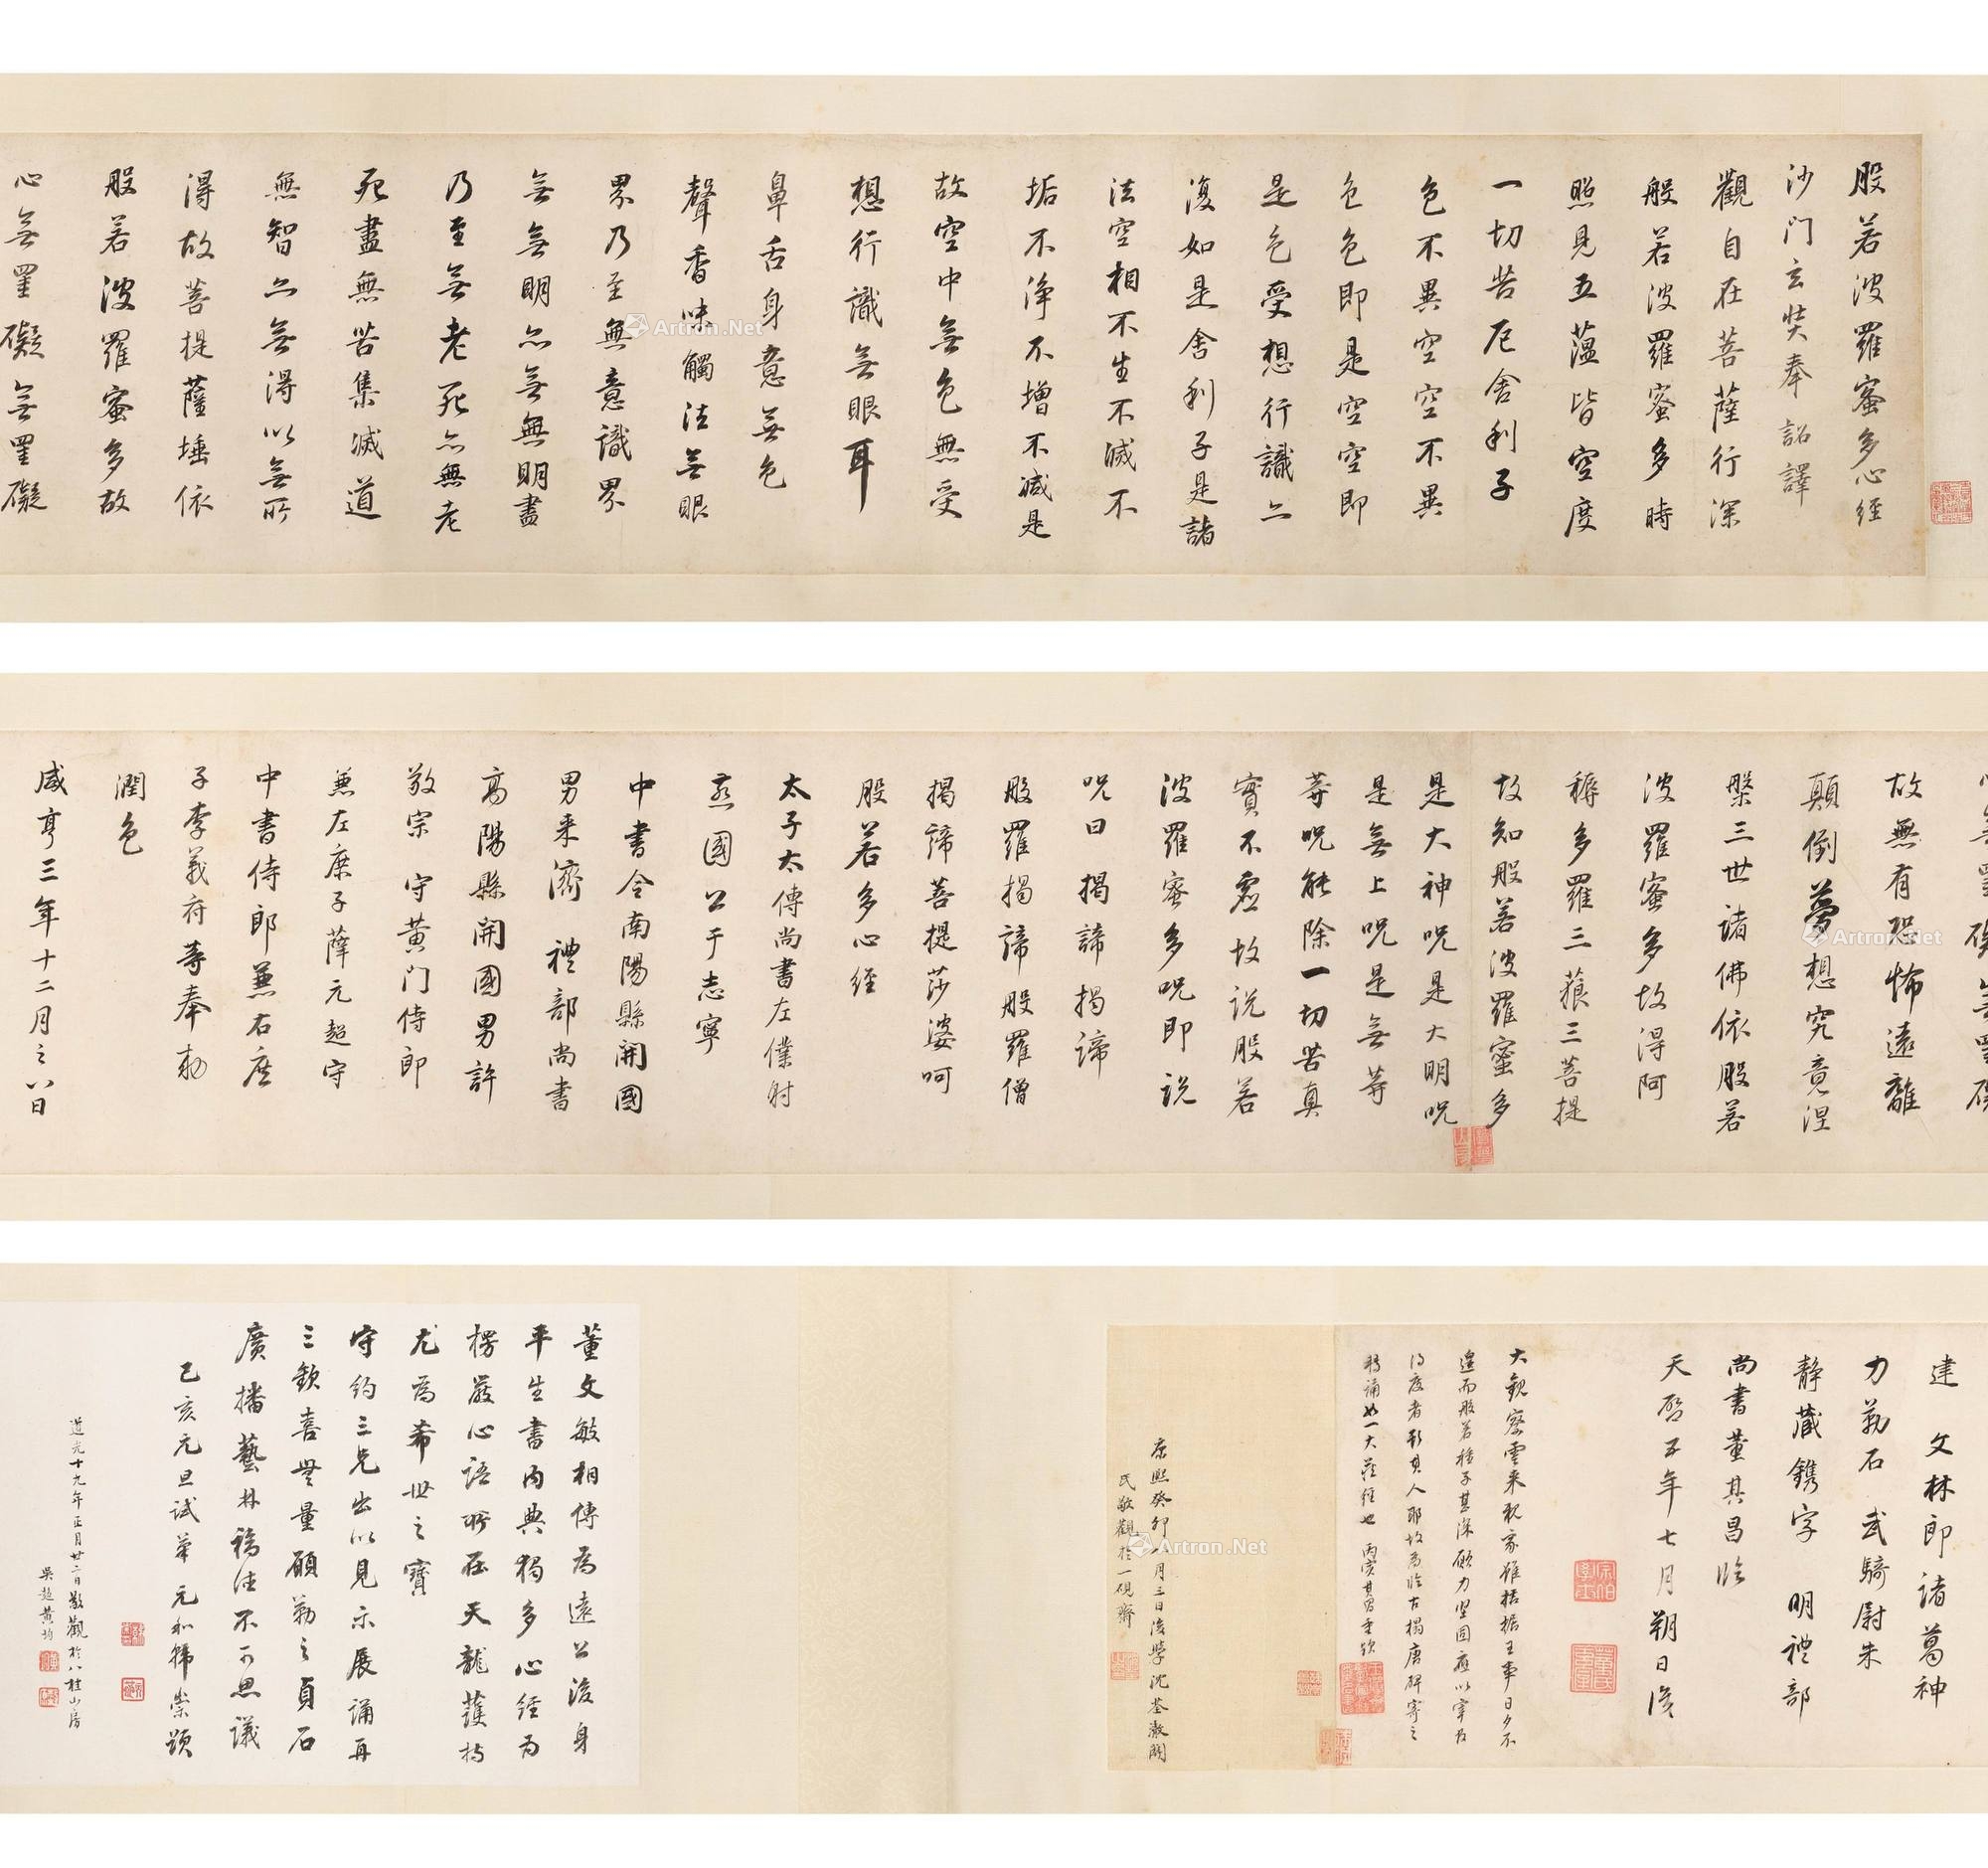 般若波羅蜜多心経
沙门玄奘奉詔譯
觀自在菩薩行深
般若波羅蜜多時
照見五蕰皆空度
一切苦厄舍利子
色不異空空不異
色色即是空空即
是色受想行識亦
復如是舍利子是諸
法空相不生不滅不
垢不淨不增不減是
故空中無色無受
想行識無眼耳
鼻舌身意無色
聲香味觸法無眼
界乃至無意識界
無無明亦無無明盡
乃至無老死亦無老
死盡無苦集滅道
無智亦無得以無所
得故菩提薩埵依
般若波羅蜜多故
心無罣礙無罣礙
心無罣礙無罣礙
故無有恐怖遠離
顛倒夢想究竟涅
槃三世諸佛依般若
波羅蜜多故得阿
耨多羅三藐三菩提
故知般若波羅蜜多
是大神呪是大明呪
是無上呪是無等
等呪能除一切苦真
實不虛故説般若
波羅蜜多呪即説
呪曰揭諦揭諦
般羅揭諦般羅僧
揭諦菩提莎婆呵
般若多心経
太子太傅尚書左僕射
燕國公于志寧
中書令南陽縣開國
男来濟 禮部尚書
高陽縣開國男許
敬宗 守黄门侍郎
兼左庶子薛元超守
中書侍郎兼右庶
子李義府等奉勅
潤色
咸亨三年十二月之八日
建 文林郎諸葛神
力勒石 武騎尉朱
静藏鐫字 明禮部
尚書董其昌臨
天啓五年七月朔日後
大觀察雲来親家雖拮据王事日夕不
遑而般若種子甚深願力堅固應以宰官
得度者彰其人耶故為臨古搨唐碑寄之
轉誦如一大藏經也 丙寅其昌重題
康熙癸卯 月三日後學沈荃澂關
氏敬觀於一硯齋
董文敏相傳為遠公後身
平生書内典獨多心經為
楞嚴心語所在天龍護持
尤為希世之寶
守約三兄出以見示展誦再
三欽喜無量願勒之貞石
廣播藝林福德不可思議
己亥元旦試筆 元和韓崇題
道光十九年正月廿二日敬觀於八桂山房
吳趨黄均
Artron.Net
Artron.Net
Artron.Net